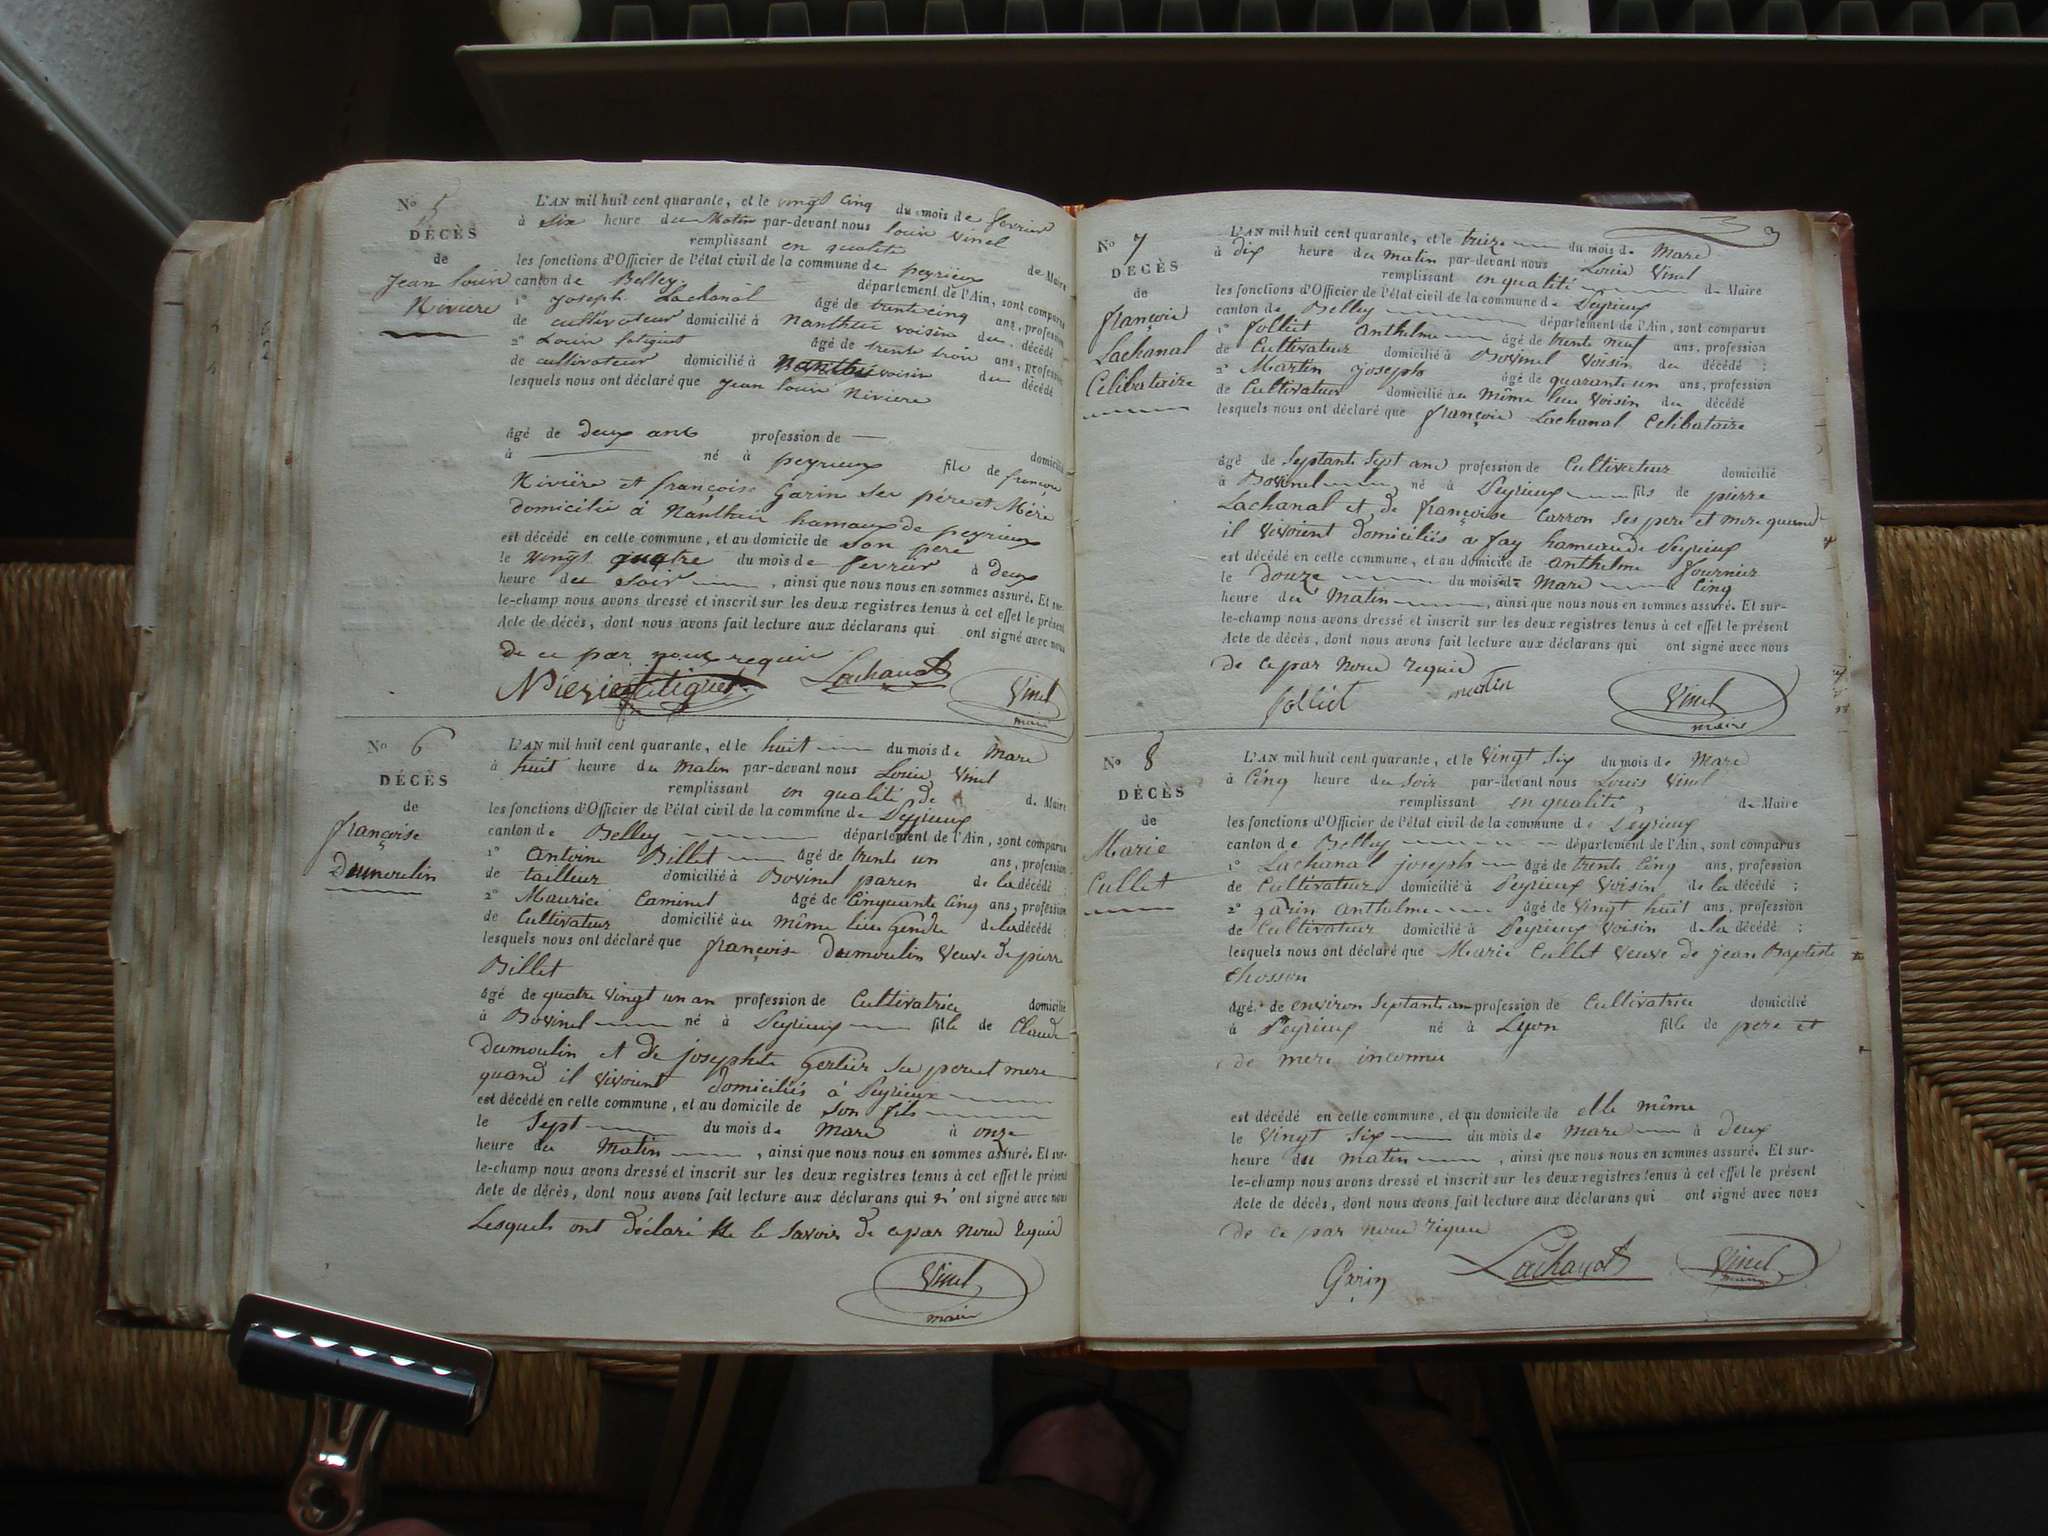 N° 5
DÉCÈS
de
Jean Louis
Niviere
L'AN mil huit cent quarante, et le vingt cinq du mois de fevrier
à Six heure du Matin par-devant nous Louis Vinel
remplissant en qualité de Maire
les fonctions d'Officier de l'état civil de la commune de peyrieux
canton de Belley département de l'Ain, sont comparus
1° Joseph Lachanal âgé de trente cinq ans, profession
de cultivateur domicilié à Nanthui voisin du décédé
2° Louis âgé de trente trois ans, profession
de cultivateur domicilié à voisin du décédé
lesquels nous ont déclaré que Jean Louis Niviere
âgé de deux ans profession de — domicilié
à né à peyrieux fils de françois
Nivière et françoise Garin ses père et Mère
domicilié à Nanthui hamaux de peyrieux
est décédé en cette commune, et au domicile de son pere
le vingt quatre du mois de fevrier à deux
heure du soir, ainsi que nous nous en sommes assuré. Et sur-
le-champ nous avons dressé et inscrit sur les deux registres tenus à cet effet le présent
Acte de décès, dont nous avons fait lecture aux déclarans qui ont signé avec nous
de ce par nous requis
Lachanal Vinel
maire
N° 6
DÉCÈS
de
françoise
Dumoulin
L'AN mil huit cent quarante, et le huit du mois de Mars
à huit heure du Matin par-devant nous Louis Vinel
remplissant en qualité de de Maire
les fonctions d'Officier de l'état civil de la commune de Peyrieux
canton de Belley département de l'Ain, sont comparus
1° Antoine Billet âgé de trente un ans, profession
de tailleur domicilié à Bovinel paren de la décédé ;
2° Maurice Caminet âgé de Cinquante Cinq ans, profession
de Cultivateur domicilié au même lieu Gendre de la décédé :
lesquels nous ont déclaré que françoise Dumoulin Veuve de pierre
Billet
âgé de quatre vingt un an profession de Cultivatrice domicilié
à Bovinel né à Peyrieux fille de Claude
Dumoulin et de josephte Gerlier ses pere et mere
quand il vivoient domiciliés à Peyrieux
est décédé en cette commune, et au domicile de son fils
le Sept du mois de Mars à onze
heure du Matin, ainsi que nous nous en sommes assuré. Et sur-
le-champ nous avons dressé et inscrit sur les deux registres tenus à cet effet le présent
Acte de décès, dont nous avons fait lecture aux déclarans qui n' ont signé avec nous
Lesquels ont déclaré ne le savoir de ce par nous requis
Vinel
maire
3
N° 7
DÉCÈS
de
françois
Lachanal
Celibataire
L'AN mil huit cent quarante, et le treize du mois de Mars
à dix heure du matin par-devant nous Louis Vinel
remplissant en qualité de Maire
les fonctions d'Officier de l'état civil de la commune de Peyrieux
canton de Belley département de l'Ain, sont comparus
1° Jolliet Anthelme âgé de trente neuf ans, profession
de Cultivateur domicilié à Bovinel Voisin du décédé ;
2° Martin Joseph âgé de quarante un ans, profession
de Cultivateur domicilié au même lieu Voisin du décédé
lesquels nous ont déclaré que françois Lachanal Celibataire
âgé de Septante Sept ans profession de Cultivateur domicilié
à Bovinel né à Peyrieux fils de pierre
Lachanal et de françoise Carron ses pere et mere quand
il vivoient domiciliés a fay hameau de Peyrieux
est décédé en cette commune, et au domicile de anthelme fournier
le douze du mois de Mars à Cinq
heure du Matin, ainsi que nous nous en sommes assuré. Et sur-
le-champ nous avons dressé et inscrit sur les deux registres tenus à cet effet le présent
Acte de décès, dont nous avons fait lecture aux déclarans qui ont signé avec nous
de ce par nous requis
Jolliet martin Vinel
maire
N° 8
DÉCÈS
de
Marie
Cullet
L'AN mil huit cent quarante, et le Vingt Six du mois de Mars
à Cinq heure du soir par-devant nous Louis Vinel
remplissant en qualité, de Maire
les fonctions d'Officier de l'état civil de la commune de Peyrieux
canton de Belley département de l'Ain, sont comparus
1° Lachanal joseph âgé de trente Cinq ans, profession
de Cultivateur domicilié à Peyrieux Voisin de la décédé ;
2° garin anthelme âgé de Vingt huit ans, profession
de Cultivateur domicilié à Peyrieux Voisin de la décédé :
lesquels nous ont déclaré que Marie Cullet Veuve de jean Baptiste
Chosson
âgé de environ Septante an profession de Cultivatrice domicilié
à Peyrieux né à Lyon fille de pere et
de mere inconnu
est décédé en cette commune, et au domicile de elle même
le Vingt Six du mois de Mars à deux
heure du matin, ainsi que nous nous en sommes assuré. Et sur-
le-champ nous avons dressé et inscrit sur les deux registres tenus à cet effet le présent
Acte de décès, dont nous avons fait lecture aux déclarans qui ont signé avec nous
de ce par nous requis
Garin Lachanal Vinel
maire